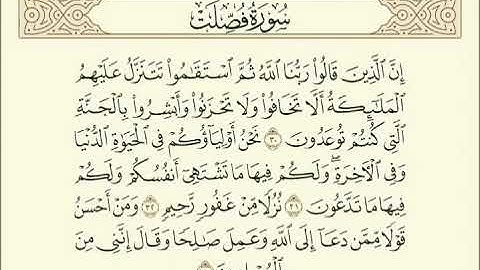 سُورَةُ فُصِّلَتْ
إِنَّ ٱلَّذِينَ قَالُوا۟ رَبُّنَا ٱللَّهُ ثُمَّ ٱسْتَقَٰمُوا۟ تَتَنَزَّلُ عَلَيْهِمُ
ٱلْمَلَٰٓئِكَةُ أَلَّا تَخَافُوا۟ وَلَا تَحْزَنُوا۟ وَأَبْشِرُوا۟ بِٱلْجَنَّةِ
ٱلَّتِى كُنتُمْ تُوعَدُونَ ٣٠ نَحْنُ أَوْلِيَآؤُكُمْ فِى ٱلْحَيَوٰةِ ٱلدُّنْيَا
وَفِى ٱلْءَاخِرَةِ ۖ وَلَكُمْ فِيهَا مَا تَشْتَهِىٓ أَنفُسُكُمْ وَلَكُمْ
فِيهَا مَا تَدَّعُونَ ٣١ نُزُلًا مِّنْ غَفُورٍ رَّحِيمٍ ٣٢ وَمَنْ أَحْسَنُ
قَوْلًا مِّمَّن دَعَآ إِلَى ٱللَّهِ وَعَمِلَ صَٰلِحًا وَقَالَ إِنَّنِى مِنَ